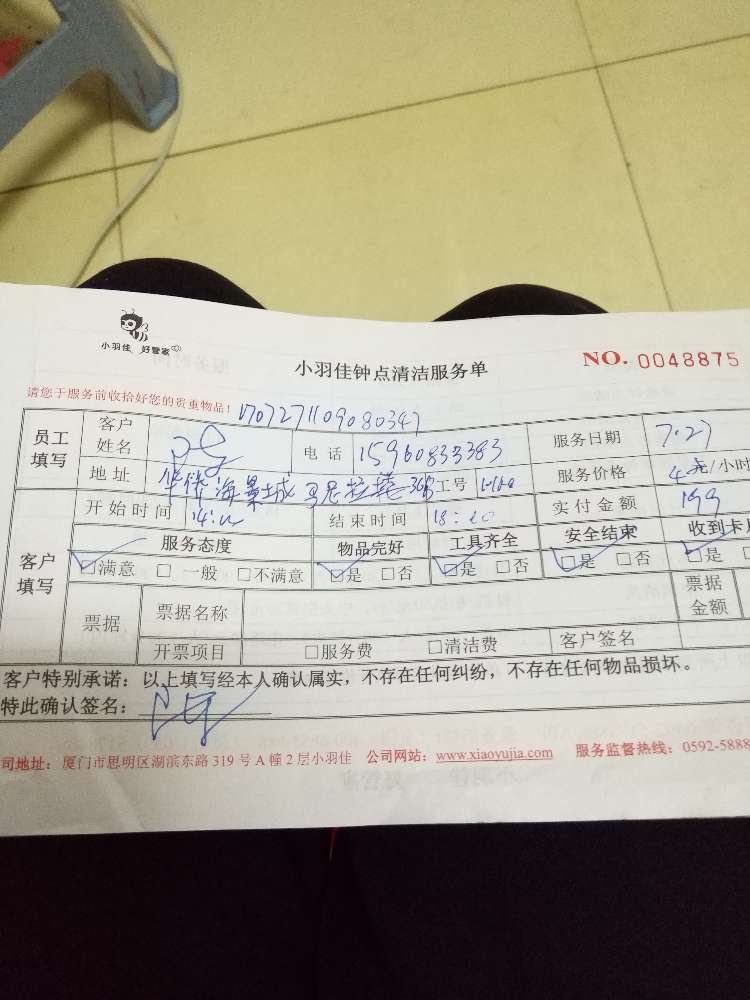 小羽佳 好管家
小羽佳钟点清洁服务单
NO. 0048875
请您于服务前收拾好您的贵重物品!
170727109080347
员工填写 客户姓名 电话 15960833383 服务日期 7.27
地址 海景城 工号 服务价格 /小时
客户填写 开始时间 14: 结束时间 18:20 实付金额 199
服务态度 物品完好 工具齐全 安全结束 收到卡
☑满意 □ 一般 □不满意 ☑是 □否 ☑是 □否 ☑是 □否 ☑是 □
票据 票据名称 票据金额
开票项目 □服务费 □清洁费 客户签名
客户特别承诺:以上填写经本人确认属实,不存在任何纠纷,不存在任何物品损坏。
特此确认签名:
司地址:厦门市思明区湖滨东路319号A幢2层小羽佳 公司网站:www.xiaoyujia.com 服务监督热线:0592-5888